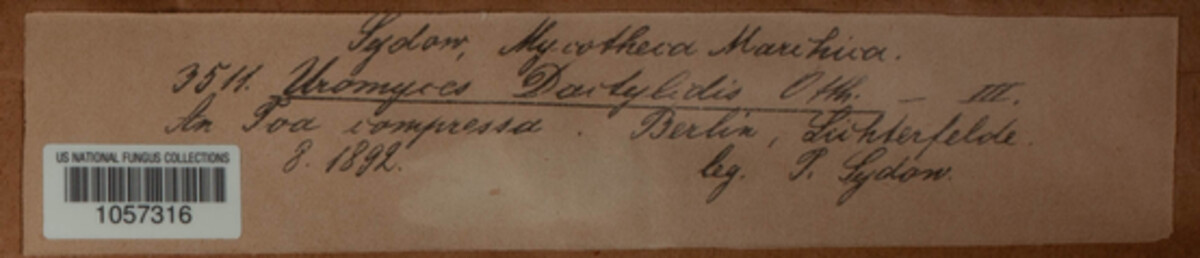 Sydow, Mycotheca Marchica.
3511. Uromyces Dactylidis Otth. — III.
An Poa compressa. Berlin, Lichterfelde.
8. 1892. leg. P. Sydow.
US NATIONAL FUNGUS COLLECTIONS
1057316